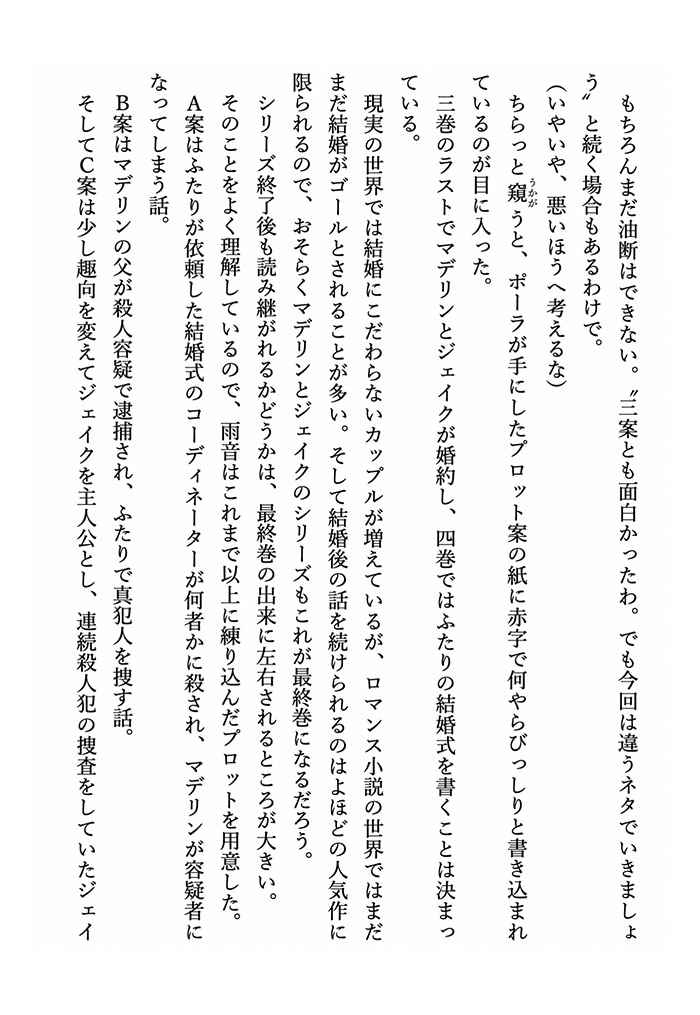 もちろんまだ油断はできない。〝三案とも面白かったわ。でも今回は違うネタでいきましょ
う〟と続く場合もあるわけで。
（いやいや、悪いほうへ考えるな）
ちらっと窺うと、ポーラが手にしたプロット案の紙に赤字で何やらびっしりと書き込まれ
うかが
ているのが目に入った。
三巻のラストでマデリンとジェイクが婚約し、四巻ではふたりの結婚式を書くことは決まっ
ている。
現実の世界では結婚にこだわらないカップルが増えているが、ロマンス小説の世界ではまだ
まだ結婚がゴールとされることが多い。そして結婚後の話を続けられるのはよほどの人気作に
限られるので、おそらくマデリンとジェイクのシリーズもこれが最終巻になるだろう。
シリーズ終了後も読み継がれるかどうかは、最終巻の出来に左右されるところが大きい。
そのことをよく理解しているので、雨音はこれまで以上に練り込んだプロットを用意した。
A案はふたりが依頼した結婚式のコーディネーターが何者かに殺され、マデリンが容疑者に
なってしまう話。
B案はマデリンの父が殺人容疑で逮捕され、ふたりで真犯人を捜す話。
そしてC案は少し趣向を変えてジェイクを主人公とし、連続殺人犯の捜査をしていたジェイ